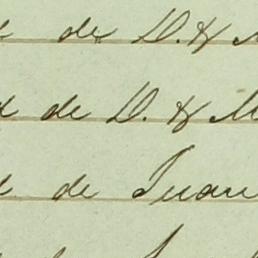 de D. & M
de D. & M
de Juan